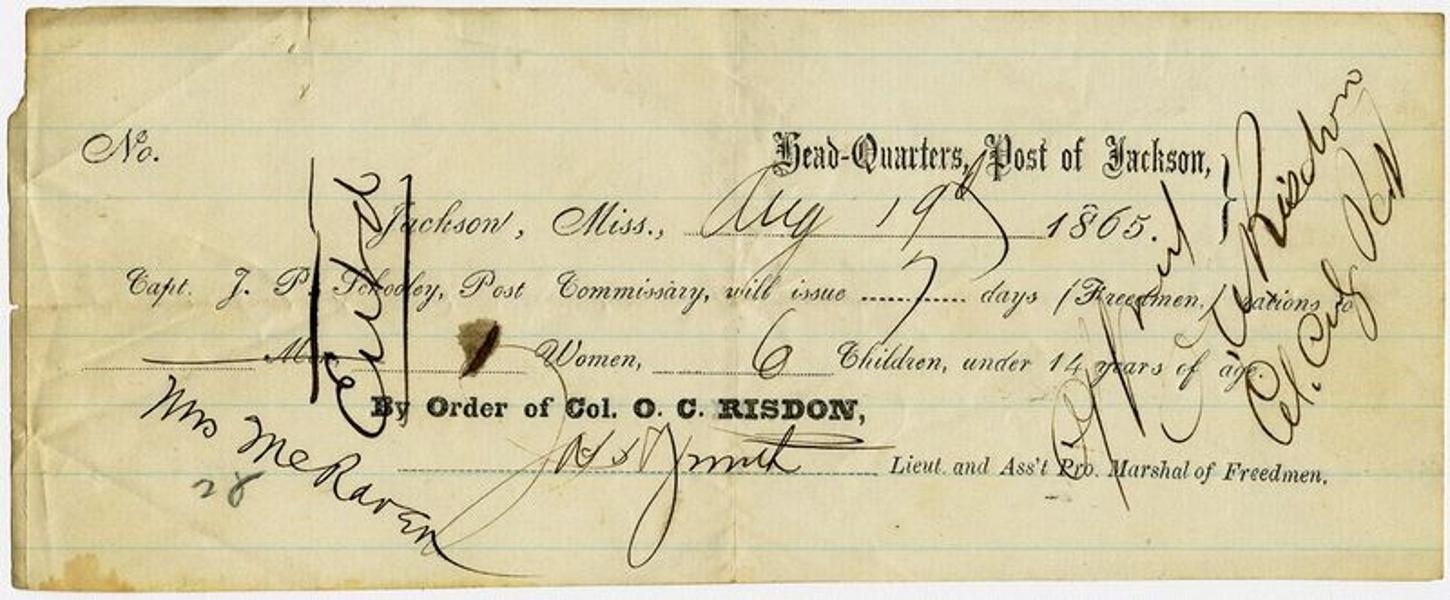 No.
Head-Quarters, Post of Jackson,
Jackson, Miss., Aug 19 1865.
Capt. J. P. Schooley, Post Commissary, will issue 7 days (Freedmen,) rations to
Men, 1 Women, 6 Children, under 14 years of age.
By Order of Col. O. C. RISDON,
Smith Lieut. and Ass't Pro. Marshal of Freedmen.
Mrs McRaven
28
Approved
O C Risdon
Col. Comdg Post